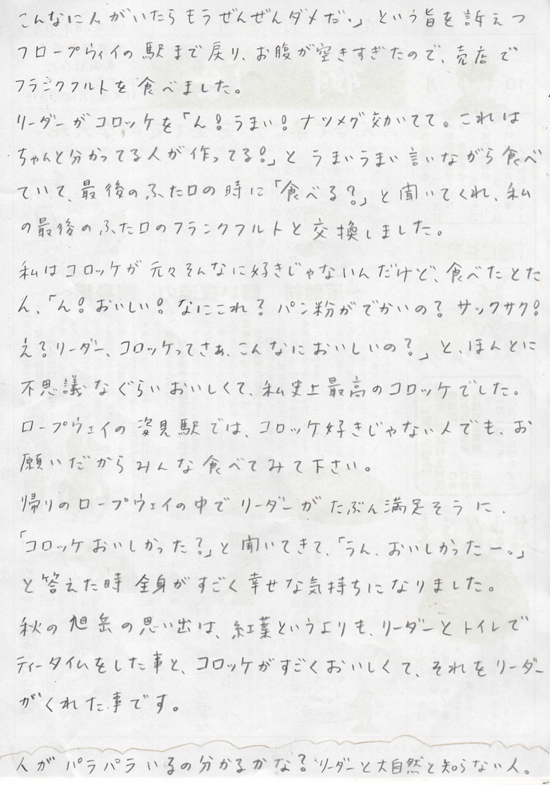 こんなに人がいたらもうぜんぜんダメだ。」という旨を訴えつ
つロープウィイの駅まで戻り、お腹が空きすぎたので、売店で
フランクフルトを食べました。
リーダーがコロッケを「ん!うまい!ナツメグ効いてて。これは
ちゃんと分かってる人が作ってる!」とうまいうまい言いながら食べ
ていて、最後のふた口の時に「食べる?」と聞いてくれ、私
の最後のふた口のフランクフルトと交換しました。
私はコロッケが元々そんなに好きじゃないんだけど、食べたとた
ん、「ん!おいしい!なにこれ?パン粉がでかいの?サックサク!
え?リーダー、コロッケってさぁ、こんなにおいしいの?」と、ほんとに
不思議なぐらいおいしくて、私史上最高のコロッケでした。
ロープウェイの姿見駅では、コロッケ好きじゃない人でも、お
願いだからみんな食べてみて下さい。
帰りのロープウェイの中でリーダーがたぶん満足そうに、
「コロッケおいしかった?」と聞いてきて、「うん、おいしかったー。」
と答えた時全身がすごく幸せな気持ちになりました。
秋の旭岳の思い出は、紅葉というよりも、リーダーとトイレで
ティータイムをした事と、コロッケがすごくおいしくて、それをリーダー
がくれた事です。
人がパラパラいるの分かるかな?リーダーと大自然と知らない人。